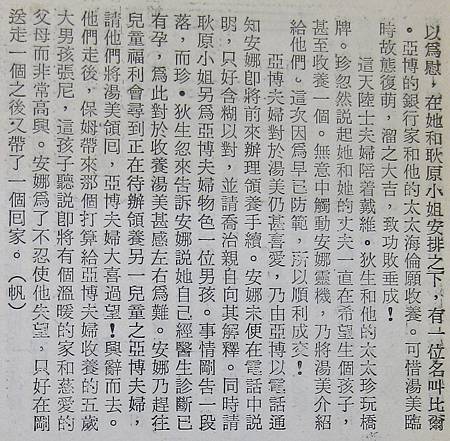 以爲慰,在她和耿原小姐安排之下,有一位名叫比爾
・亞博的銀行家和他的太太海倫願收養。可惜湯美臨
時故態復萌,溜之大吉,致功敗垂成!
這天陸士夫婦陪着戴維・狄生和他的太太珍玩橋
牌。珍忽然說起她和她的丈夫一直在希望生個孩子,
甚至收養一個。無意中觸動安娜靈機,乃將湯美介紹
給他們。這次因爲早已防範,所以順利成交!
亞博夫婦對於湯美仍甚喜愛,乃由亞博以電話通
知安娜即將前來辦理領養手續。安娜未便在電話中說
明,只好含糊以對,並請喬治親自向其解釋。同時請
耿原小姐另爲亞博夫婦物色一位男孩。事情剛告一段
落,而珍・狄生忽來告訴安娜說她自己經醫生診斷已
有孕,爲此對於收養湯美甚感左右爲難。安娜乃趕往
兒童福利會尋到正在待辦領養另一兒童之亞博夫婦,
請他們將湯美領囘,亞博夫婦大喜過望!興辭而去。
他們走後,保姆帶來那個打算給亞博夫婦收養的五歲
大男孩張尼,這孩子聽說即將有個溫暖的家和慈愛的
父母而非常高興。安娜爲了不忍使他失望,只好在剛
送走一個之後又帶了一個囘家。(帆)